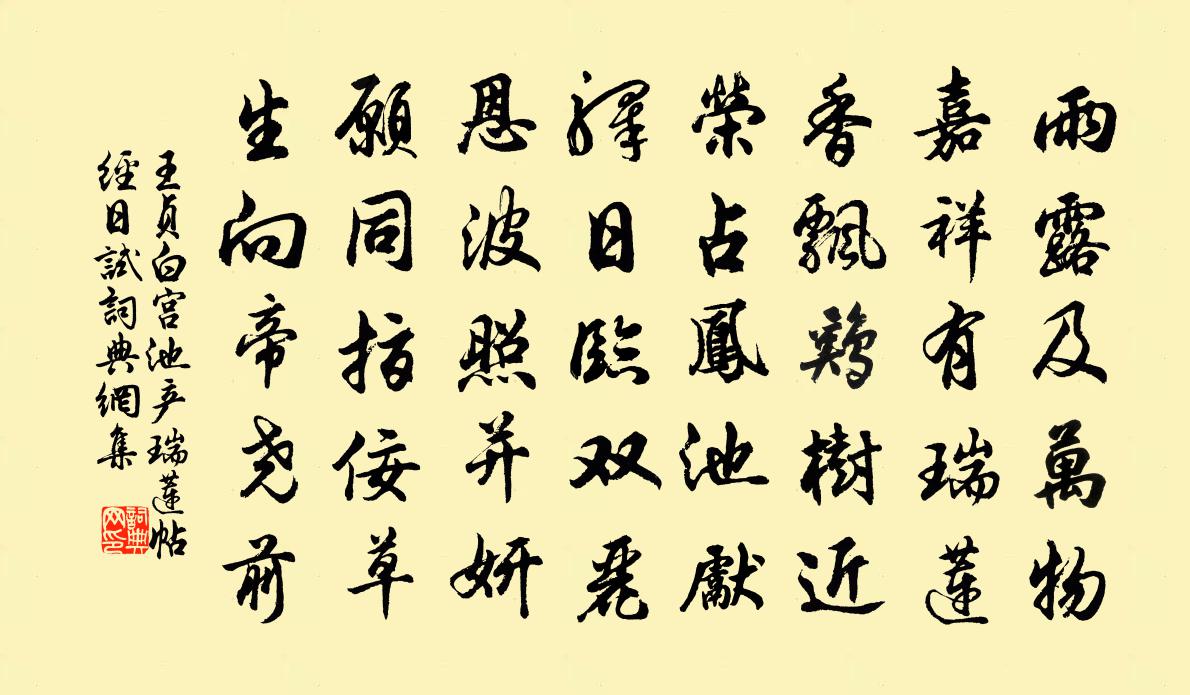 雨露及萬物
嘉祥有瑞蓮
香飄鷄樹近
榮占鳳池獻
釋日臨双麗
恩波照并妍
願同指佞草
生向帝尭前
王貞白宮池产瑞蓮帖
經日試詞典網集
詞典
网印